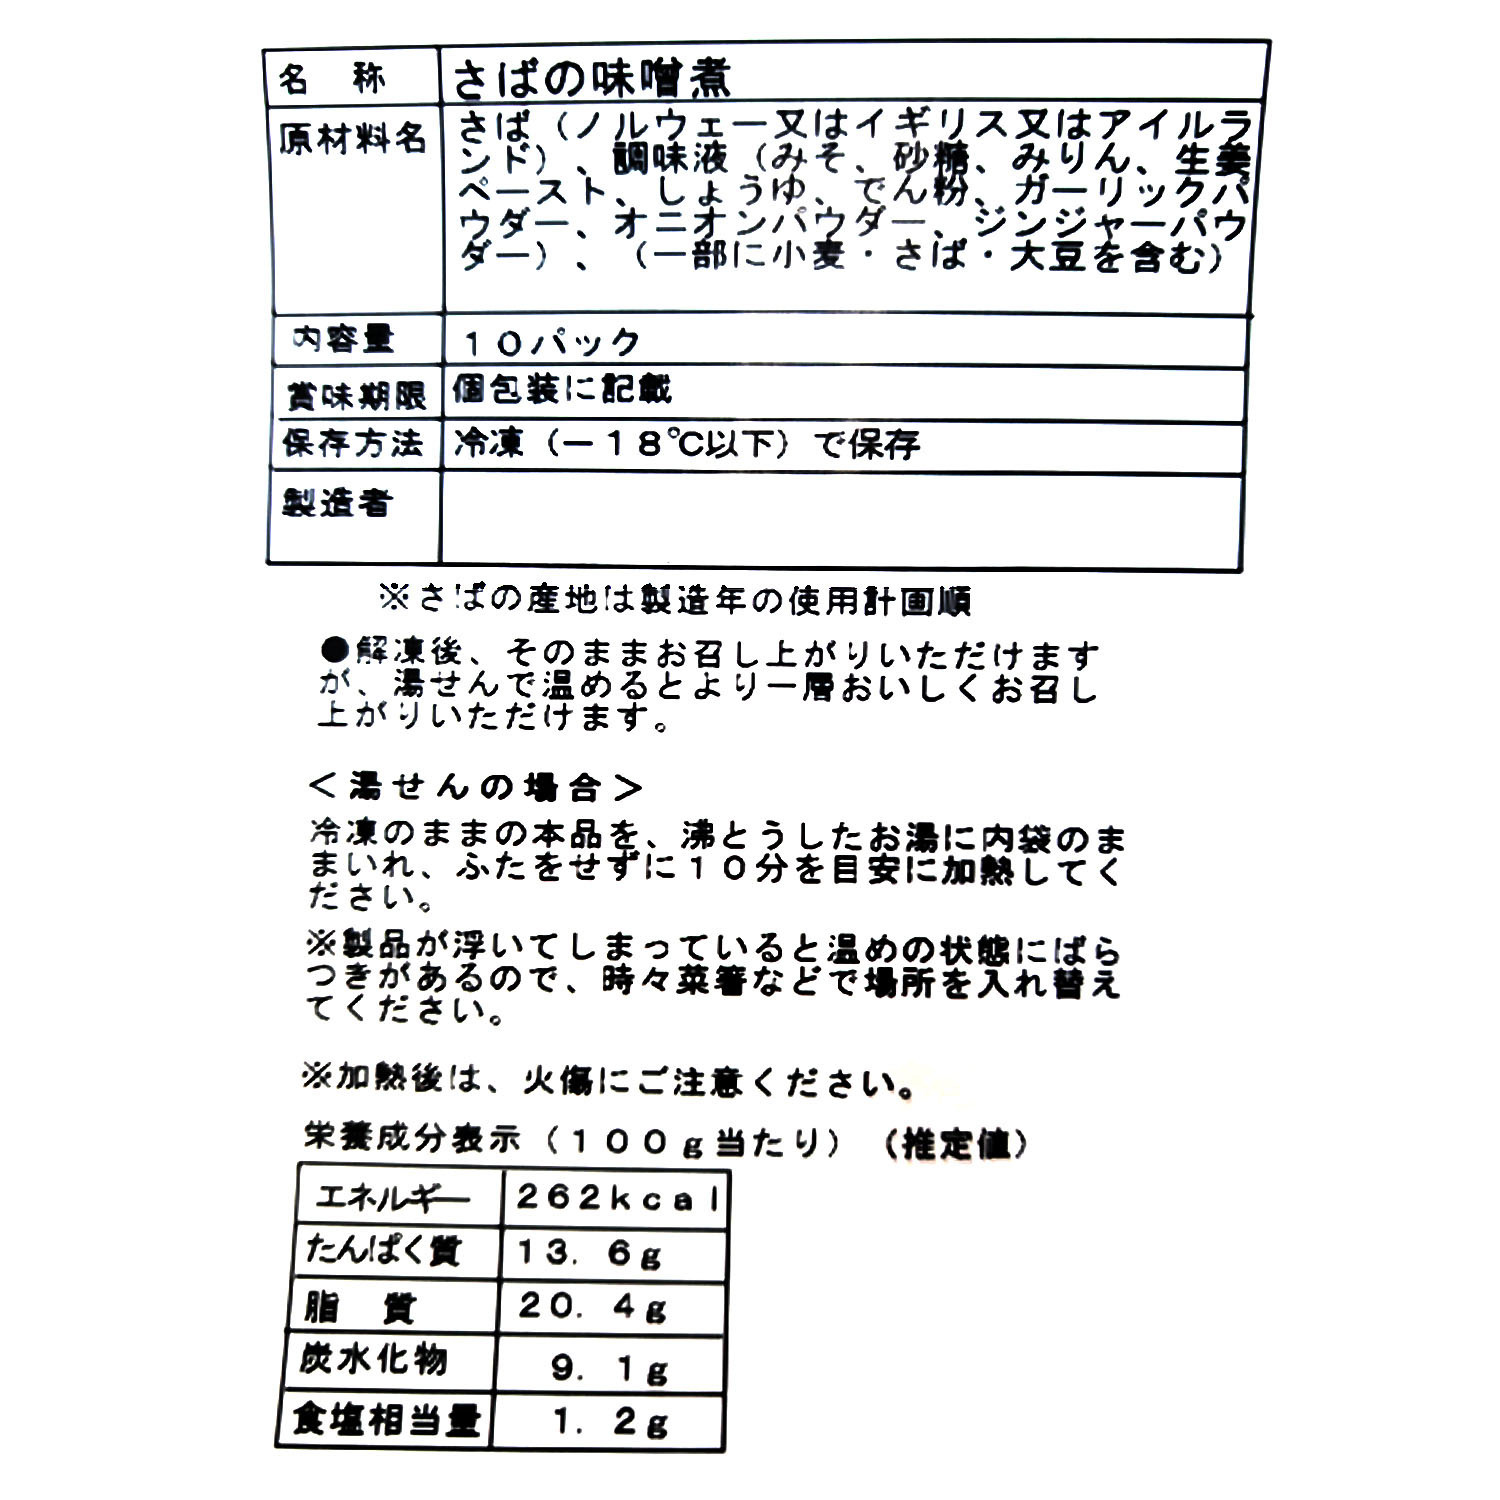 名　称　さばの味噌煮
原材料名　さば（ノルウェー又はイギリス又はアイルラ
ンド）、調味液（みそ、砂糖、みりん、生姜
ペースト、しょうゆ、でん粉、ガーリックパ
ウダー、オニオンパウダー、ジンジャーパウ
ダー）、（一部に小麦・さば・大豆を含む）
内容量　１０パック
賞味期限　個包装に記載
保存方法　冷凍（－１８℃以下）で保存
製造者
※さばの産地は製造年の使用計画順
●解凍後、そのままお召し上がりいただけます
が、湯せんで温めるとより一層おいしくお召し
上がりいただけます。
＜湯せんの場合＞
冷凍のままの本品を、沸とうしたお湯に内袋のま
まいれ、ふたをせずに１０分を目安に加熱してく
ださい。
※製品が浮いてしまっていると温めの状態にばら
つきがあるので、時々菜箸などで場所を入れ替え
てください。
※加熱後は、火傷にご注意ください。
栄養成分表示（１００ｇ当たり）（推定値）
エネルギー　２６２ｋｃａｌ
たんぱく質　１３．６ｇ
脂　質　２０．４ｇ
炭水化物　９．１ｇ
食塩相当量　１．２ｇ